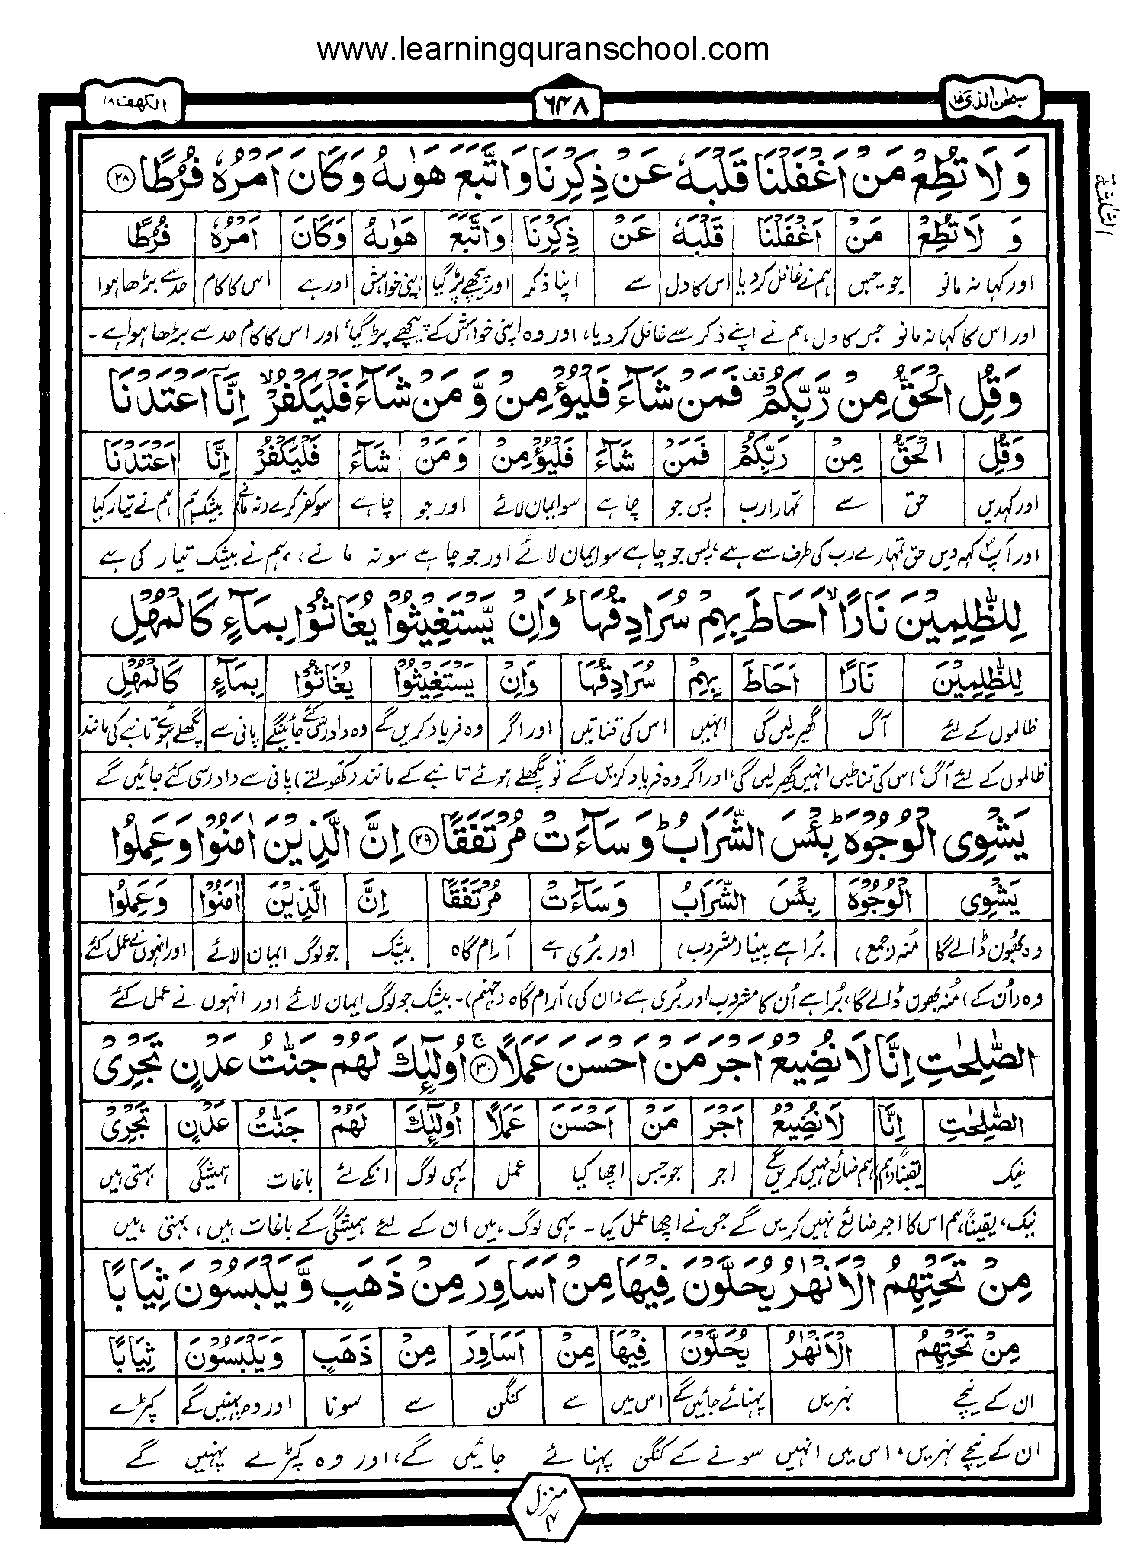 www.learningquranschool.com
سبحٰن الذی ۱۵
٦٣٨
الكهف ۱۸
وَلَا تُطِعْ مَنْ اَغْفَلْنَا قَلْبَهٗ عَنْ ذِكْرِنَا وَاتَّبَعَ هَوٰىهُ وَكَانَ اَمْرُهٗ فُرُطًا ۝۲۸
وَ لَا تُطِعْ مَنْ اَغْفَلْنَا قَلْبَهٗ عَنْ ذِكْرِنَا وَاتَّبَعَ هَوٰىهُ وَكَانَ اَمْرُهٗ فُرُطًا
اور کہا نہ مانو جو جس ہم نے غافل کردیا اس کا دل سے اپنا ذکر اور پیچھے پڑ گیا اپنی خواہش اور ہے اس کا کام حد سے بڑھا ہوا
اور اس کا کہا نہ مانو جس کا دل ہم نے اپنے ذکر سے غافل کردیا، اور وہ اپنی خواہش کے پیچھے پڑ گیا اور اس کا کام حد سے بڑھا ہوا ہے۔
وَقُلِ الْحَقُّ مِنْ رَّبِّكُمْ قف فَمَنْ شَآءَ فَلْيُؤْمِنْ وَّمَنْ شَآءَ فَلْيَكْفُرْ ۙ اِنَّا اَعْتَدْنَا
وَقُلِ الْحَقُّ مِنْ رَّبِّكُمْ فَمَنْ شَآءَ فَلْيُؤْمِنْ وَمَنْ شَآءَ فَلْيَكْفُرْ اِنَّا اَعْتَدْنَا
اور کہدیں حق سے تمہارا رب پس جو چاہے سو ایمان لائے اور جو چاہے سو کفر کرے (نہ مانے) بیشک ہم ہم نے تیار کیا
اور آپؐ کہہ دیں حق تمہارے رب کی طرف سے ہے، پس جو چاہے سو ایمان لائے اور جو چاہے سو نہ مانے، ہم نے بیشک تیار کی ہے
لِلظّٰلِمِيْنَ نَارًا ۙ اَحَاطَ بِهِمْ سُرَادِقُهَا ؕ وَاِنْ يَّسْتَغِيْثُوْا يُغَاثُوْا بِمَآءٍ كَالْمُهْلِ
لِلظّٰلِمِيْنَ نَارًا اَحَاطَ بِهِمْ سُرَادِقُهَا وَاِنْ يَّسْتَغِيْثُوْا يُغَاثُوْا بِمَآءٍ كَالْمُهْلِ
ظالموں کے لئے آگ گھیر لیں گی انہیں اس کی قناتیں اور اگر وہ فریاد کریں گے وہ داد رسی کئے جائینگے پانی سے پگھلے ہوئے تانبے کی مانند
ظالموں کے لئے آگ، اس کی قناتیں انہیں گھیر لیں گی، اور اگر وہ فریاد کریں گے تو پگھلے ہوئے تانبے کے مانند (کھولتے) پانی سے داد رسی کئے جائیں گے
يَشْوِى الْوُجُوْهَ ؕ بِئْسَ الشَّرَابُ ؕ وَسَآءَتْ مُرْتَفَقًا ۝۲۹ اِنَّ الَّذِيْنَ اٰمَنُوْا وَعَمِلُوا
يَشْوِى الْوُجُوْهَ بِئْسَ الشَّرَابُ وَسَآءَتْ مُرْتَفَقًا اِنَّ الَّذِيْنَ اٰمَنُوْا وَعَمِلُوا
وہ بھون ڈالے گا منہ (جمع) بُرا ہے پینا (مشروب) اور بُری ہے آرام گاہ بیشک جو لوگ ایمان لائے اور انہوں نے عمل کئے
وہ (اُن کے) منہ بھون ڈالے گا، بُرا ہے اُن کا مشروب اور بُری ہے (ان کی) آرام گاہ (جہنم)۔ بیشک جو لوگ ایمان لائے اور انہوں نے عمل کئے
الصّٰلِحٰتِ اِنَّا لَا نُضِيْعُ اَجْرَ مَنْ اَحْسَنَ عَمَلًا ۝۳۰ اُولٰٓئِكَ لَهُمْ جَنّٰتُ عَدْنٍ تَجْرِىْ
الصّٰلِحٰتِ اِنَّا لَا نُضِيْعُ اَجْرَ مَنْ اَحْسَنَ عَمَلًا اُولٰٓئِكَ لَهُمْ جَنّٰتُ عَدْنٍ تَجْرِىْ
نیک یقیناً ہم ہم ضائع نہیں کریں گے اجر جو جس اچھا کیا عمل یہی لوگ انکے لئے باغات ہمیشگی بہتی ہیں
نیک، یقیناً ہم اس کا اجر ضائع نہیں کریں گے جس نے اچھا عمل کیا۔ یہی لوگ ہیں ان کے لئے ہمیشگی کے باغات ہیں، بہتی ہیں
مِنْ تَحْتِهِمُ الْاَنْهٰرُ يُحَلَّوْنَ فِيْهَا مِنْ اَسَاوِرَ مِنْ ذَهَبٍ وَّيَلْبَسُوْنَ ثِيَابًا
مِنْ تَحْتِهِمُ الْاَنْهٰرُ يُحَلَّوْنَ فِيْهَا مِنْ اَسَاوِرَ مِنْ ذَهَبٍ وَّيَلْبَسُوْنَ ثِيَابًا
ان کے نیچے نہریں پہنائے جائیں گے اس میں سے کنگن سے سونا اور وہ پہنیں گے کپڑے
ان کے نیچے نہریں، اس میں انہیں سونے کے کنگن پہنائے جائیں گے، اور وہ کپڑے پہنیں گے
منزل ۴